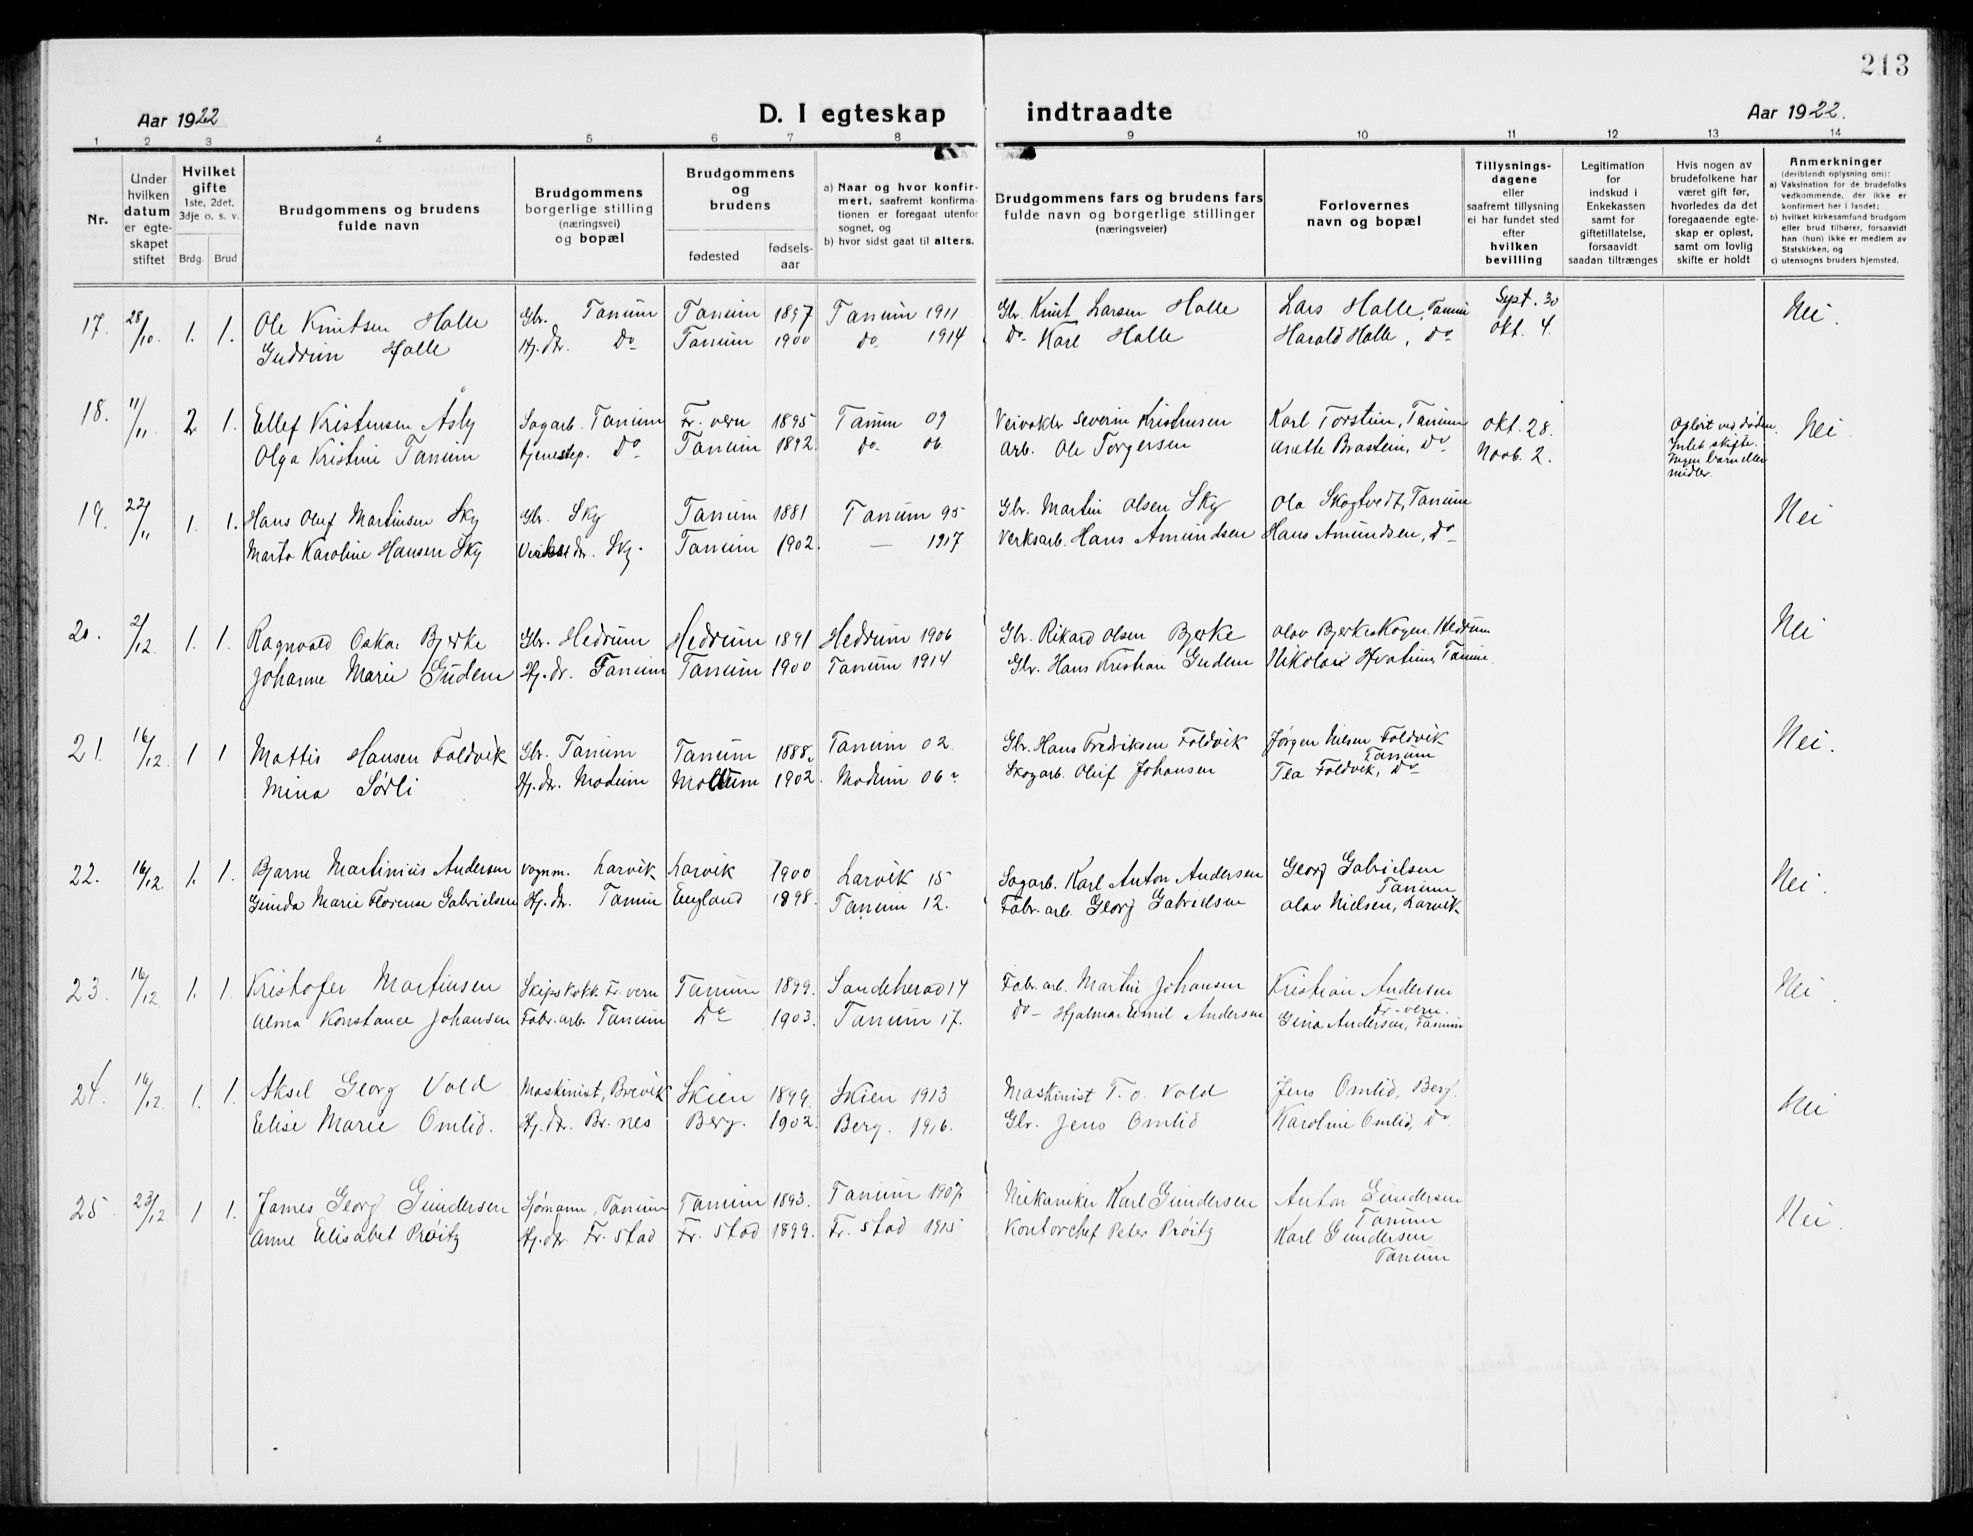 213
Aar 1922
D. I egteskap indtraadte
Aar 1922.
1 2 3 4 5 6 7 8 9 10 11 12 13 14
Nr.
Under hvilken datum er egteskapet stiftet
Hvilket gifte
1ste, 2det, 3dje o. s. v.
Brdg. Brud
Brudgommens og brudens fulde navn
Brudgommens borgerlige stilling (næringsvei) og bopæl
Brudgommens og brudens
fødested
fødselsaar
a) Naar og hvor konfirmert, saafremt konfirmationen er foregaat utenfor sognet, og
b) hvor sidst gaat til alters.
Brudgommens fars og brudens fars fulde navn og borgerlige stillinger (næringsveier)
Forlovernes navn og bopæl
Tillysningsdagene eller saafremt tillysning ei har fundet sted efter hvilken bevilling
Legitimation for indskud i Enkekassen samt for giftetillatelse, forsaavidt saadan tiltrænges
Hvis nogen av brudefolkene har været gift før, hvorledes da det foregaaende egteskap er opløst, samt om lovlig skifte er holdt
Anmerkninger (deriblandt oplysning om):
a) Vaksination for de brudefolks vedkommende, der ikke er konfirmert her i landet;
b) hvilket kirkesamfund brudgom eller brud tilhører, forsaavidt han (hun) ikke er medlem av Statskirken, og
c) utensogns bruders hjemsted.
17. 28/10 1. 1. Ole Knutsen Halle Gbr. Tanum Tanum 1897 Tanum 1911 Gbr. Knut Larsen Halle Lars Halle, Tanum Sept. 30 Nei.
Gudrun Halle Hj. dr. Do Tanum 1900 Do 1914 Do Karl Halle Harald Halle, Do Okt. 4.
18. 11/11 2. 1. Ellef Kristensen Åsly Sagarb. Tanum Fr.vern 1895 Tanum 09 Veivokter Severin Kristensen Karl Torstein, Tanum Okt. 28. Opløst ved døden. Intet skifte. Ingen barn eller midler. Nei.
Olga Kristine Tanum tjenestep. Do Tanum 1892. Do 06 Arb. Ole Torgersen Anette Brastein, Do Novb. 2.
19. 22/11 1. 1. Hans Oluf Martinsen Sky Gbr. Sky Tanum 1881 Tanum 95 Gbr. Martin Olsen Sky Ole Skogtvedt, Tanum Nei
Marta Karoline Hansen Sky Sky. Tanum 1902. — 1917 Verksarb. Hans Amundsen Hans Amundsen, Do
20. 2/12. 1. 1. Ragnvald Oskar Bjerke Gbr. Hedrum Hedrum 1891 Hedrum 1906 Gbr. Rikard Olsen Bjerke Olav Bjerkeskogen, Hedrum Nei
Johanne Marie Gudem Hj. dr. Tanum Tanum 1900 Tanum 1914 Gbr. Hans Kristian Gudem Nikolai Tanum.
21. 16/12. 1 1 Mattis Hansen Foldvik Gbr. Tanum Tanum 1888. Tanum 02. Gbr. Hans Fredriksen Foldvik Jørgen Nilsen Foldvik Tanum Nei.
Mina Sørli Hj. dr. Modum Modum 1902. Modum 06 Skogarb. Oluf Johansen Tea Foldvik, Do
22. 16/12. 1. 1. Bjarne Martinius Andersen Vognm. Larvik Larvik 1900 Larvik 15 Sagarb. Karl Anton Andersen Georg Gabrielsen Tanum Nei.
Gunda Marie Florense Gabrielsen Hj. dr. Tanum England 1898. Tanum 12. Fabr. arb. Georg Gabrielsen Olav Nielsen, Larvik
23. 16/12 1. 1 Kristofer Martinsen Skipskokk Fr.vern Tanum 1899. Sandeherad 14 Fabr. arb. Martin Johansen Kristian Andersen Fr.vern. Nei.
Alma Konstance Johansen Fabr. arb. Tanum Do 1903. Tanum 17. Do Hjalmar Emil Andersen Gina Andersen, Tanum
24. 16/12. 1. 1. Aksel Georg Vold Maskinist, Brevik Skien 1899. Skien 1913 Maskinist T. O. Vold Jens Omlid, Berg. Nei
Elise Marie Omlid. Hj. dr. Br.nes Berg. 1902. Berg. 1916. Gbr. Jens Omlid Karoline Omlid, Do
25. 23/12. 1 1. James Georg Gundersen Sjømann, Tanum Tanum 1893. Tanum 1907 Mekaniker Karl Gundersen Anton Gundersen Tanum Nei.
Anne Elisabet Prøitz Hj. dr. Fr.stad Fr.stad 1899. Fr.stad 1915 Kontorchef Peter Prøitz Karl Gundersen Tanum